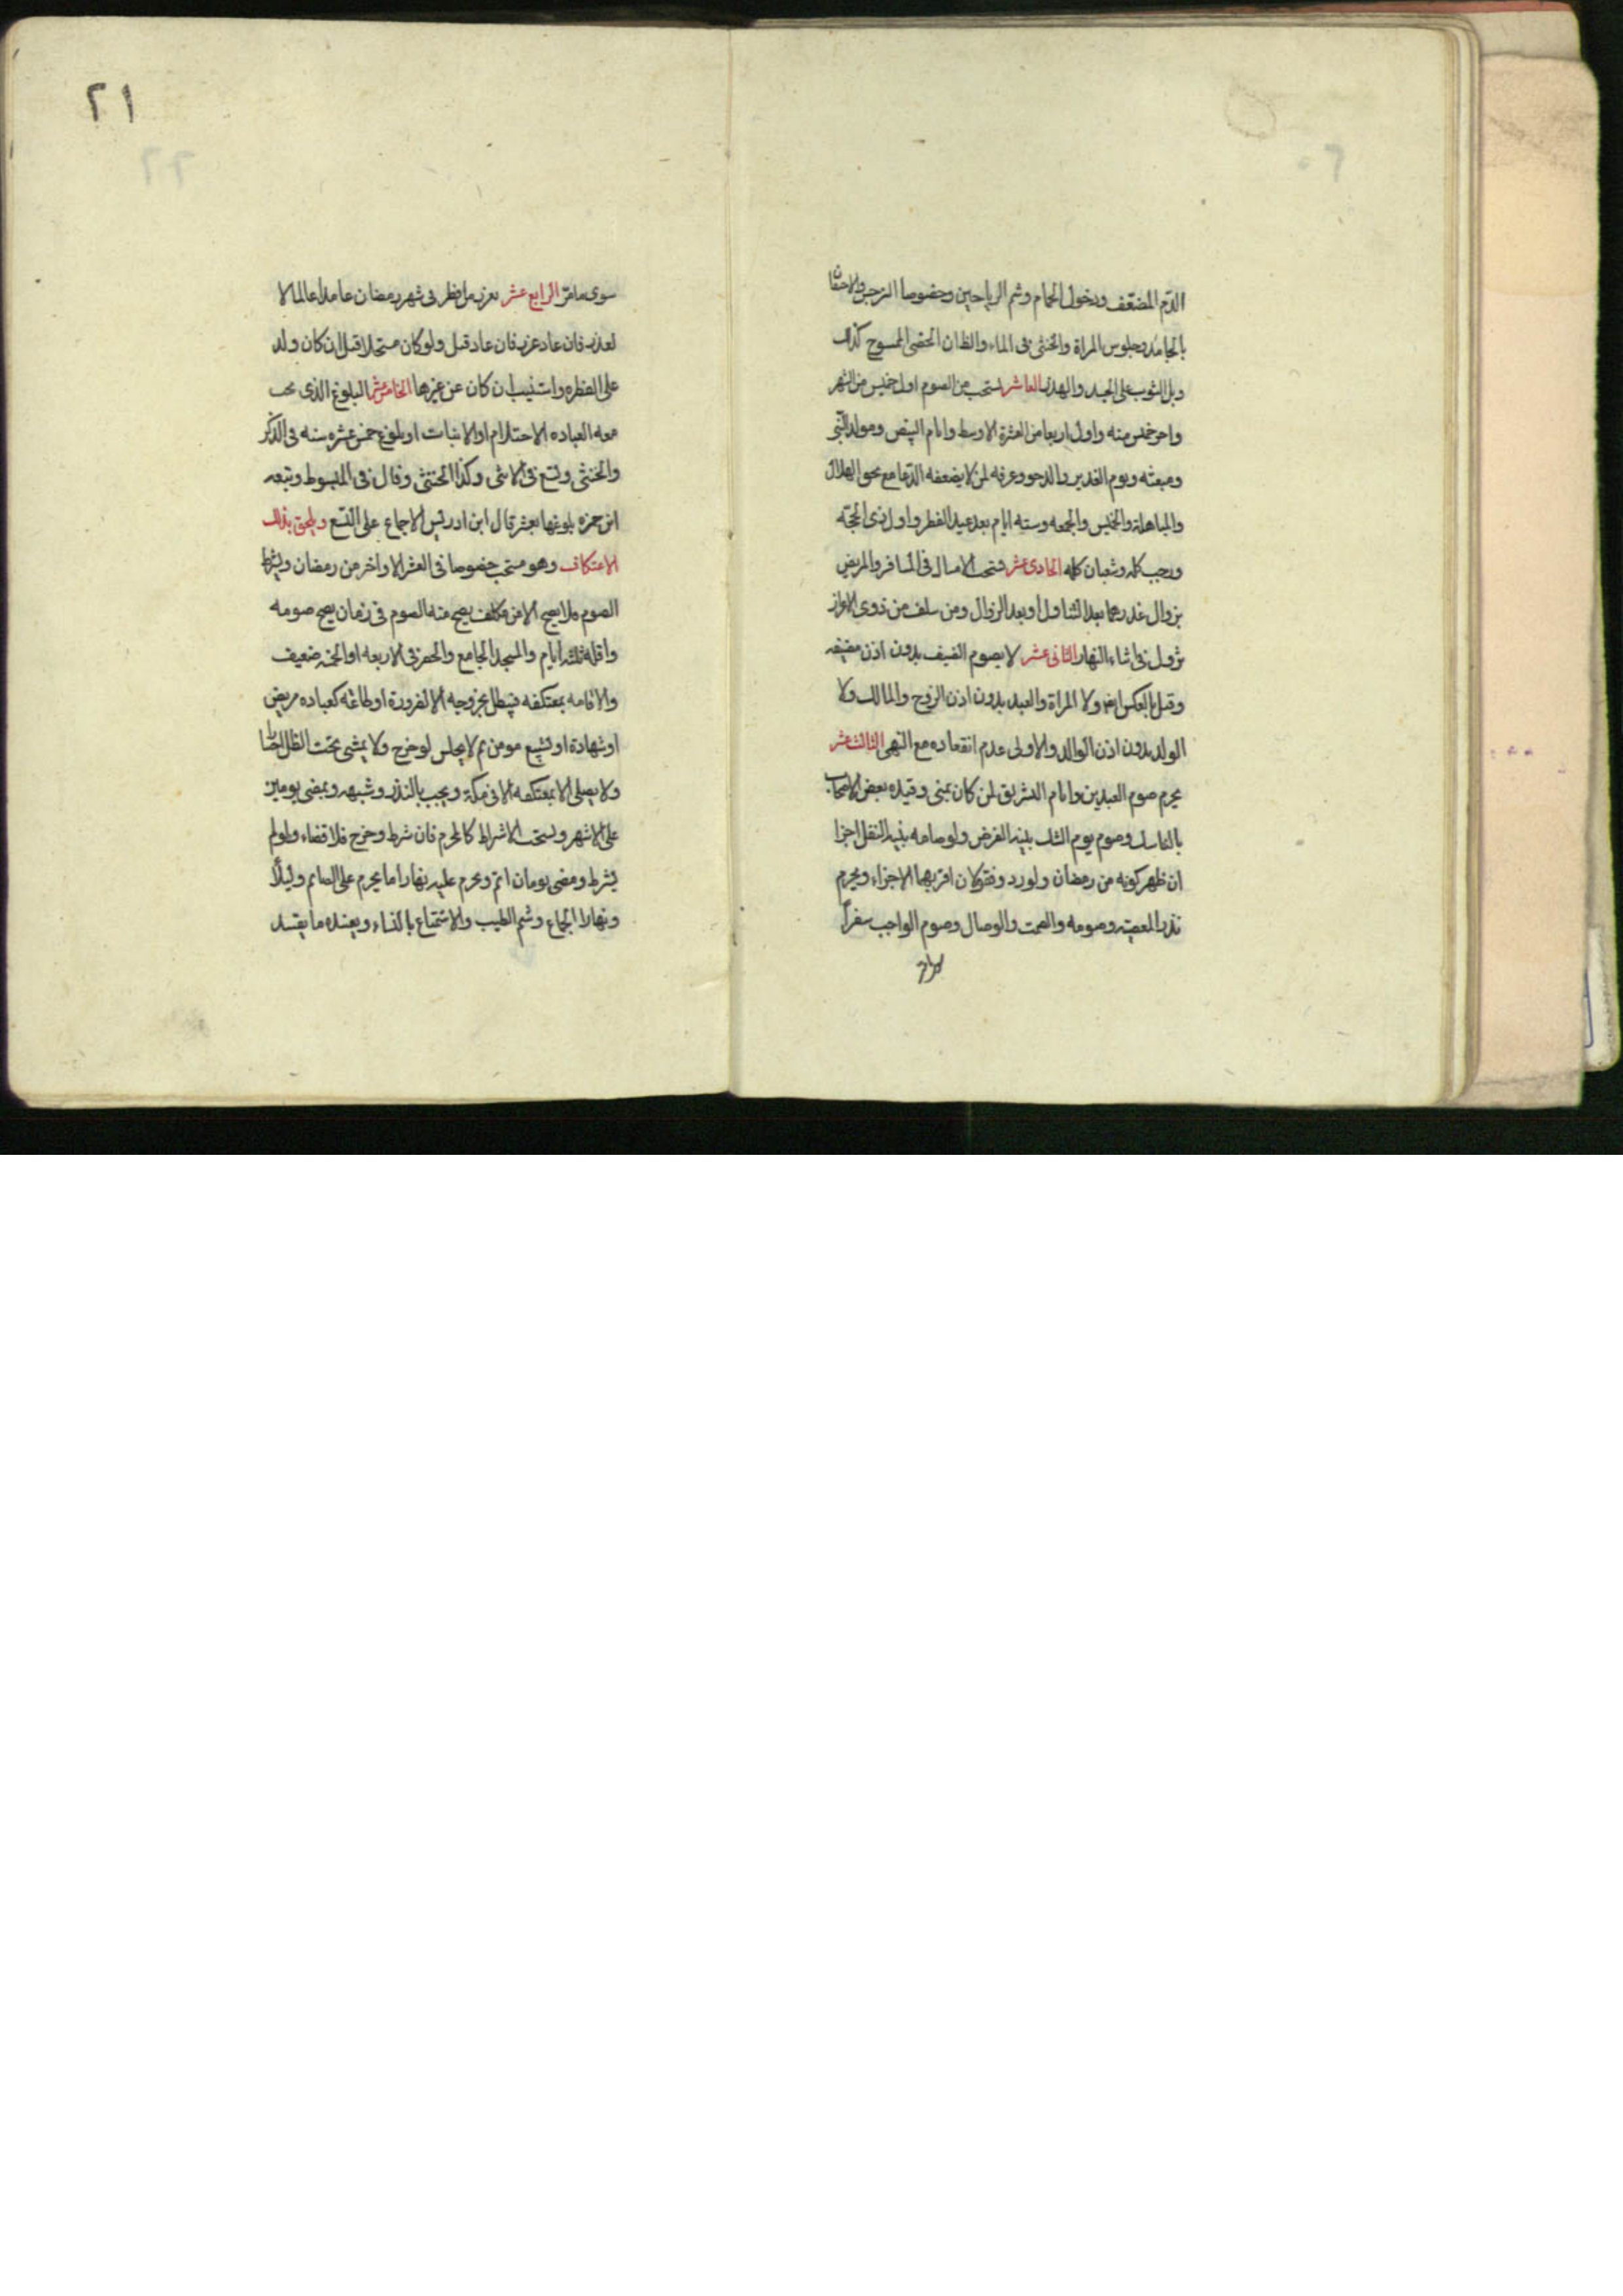 الدم المضعف ودخول الحمام وشم الرياحين وخصوصا النرجس والاحتقان
بالجامد وجلوس المراة والخنثى فى الماء والظان الخصى الممسوح كذلك
وبل الثوب على الجسد والهذر العاشر يستحب من الصوم اول خميس من الشهر
واخر خميس منه واول اربعا من العشرة الاوسط وايام البيض ومولد النبى
ومبعثه ويوم الغدير والدحو وعرفه لمن لا يضعفه الدعا مع تحقق الهلال
والمباهلة والخميس والجمعه وسته ايام بعد عيد الفطر واول ذى الحجة
ورجب كله وشعبان كله الحادى عشر يستحب الامساك فى المسافر والمريض
بزوال عذرهما بعد التناول او بعد الزوال ومن سلف من ذوى الاعذار
تزول فى اثناء النهار الثانى عشر لا يصوم الضيف بدون اذن مضيفه
وقيل بالعكس ايضا ولا المراة والعبد بدون اذن الزوج والمالك ولا
الولد بدون اذن الوالد والاولى عدم انعقاده مع النهى الثالث عشر
يحرم صوم العيدين وايام التشريق لمن كان بمنى وقيده بعض الاصحاب
بالناسك وصوم يوم الشك بنية الفرض ولو صامه بنية النفل اجزا
ان ظهر كونه من رمضان ولو ردد فقولان اقربهما الاجزاء ويحرم
نذر المعصية وصومه والصمت والوصال وصوم الواجب سفراً
سوى ما مر الرابع عشر يعزر من افطر فى شهر رمضان عامدا عالما لا
لعذر فان عاد عزر فان عاد قتل ولو كان مستحلا قتل ان كان ولد
على الفطره واستتيب ان كان عن غيرها الخامس عشر البلوغ الذى يجب
معه العباده الاحتلام او الانبات او بلوغ خمس عشره سنه فى الذكر
والخنثى وتسع فى الانثى وكذا الخنثى وقال فى المبسوط وتبعه
ابن حمزه بلوغها بعشر قال ابن ادريس الاجماع على التسع ويلحق بذلك
الاعتكاف وهو مستحب خصوصا فى العشر الاواخر من رمضان ويشترط
الصوم فلا يصح الا من مكلف يصح منه الصوم فى زمان يصح صومه
واقله ثلثه ايام والمسجد الجامع والحصر فى الاربعه او الخمسه ضعيف
والاقامه بمعتكفه فيبطل بخروجه الا لضرورة او طاعة كعياده مريض
او شهادة او تشييع مومن ثم لا يجلس لو خرج ولا يمشى تحت الظل اختيارا
ولا يصلى الا بمعتكفه الا فى مكة ويجب بالنذر وشبهه وبمضى يومين
على الاشهر ويستحب الاشتراط كالمحرم فان شرط وخرج فلا قضاء ولو لم
يشترط ومضى يومان اتم ويحرم عليه نهارا ما يحرم على الصائم وليلاً
ونهارا الجماع وشم الطيب والاستمتاع بالنساء ويفسده ما يفسد
٢١